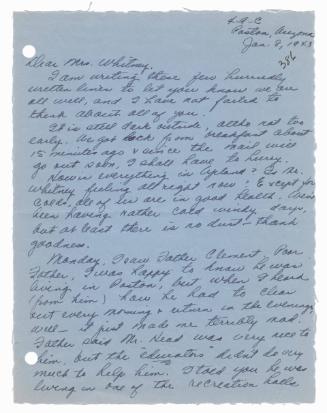 4-9-C
Poston, Arizona
Jan. 8, 1943
386
Dear Mrs. Whitney,
I am writing these few hurriedly
written lines to let you know we are
all well, and I have not failed to
think about all of you.
It is still dark outside, altho not too
early. We got back from breakfast about
15 minutes ago & since the mail will
go out soon, I shall have to hurry.
How is everything in Upland? Is Mr.
Whitney feeling all right now? Except for
colds, all of us are in good health. We've
been having rather cold windy days,
but at least there is no dust - thank
goodness.
Monday, I saw Father Clement. Poor
Father, I was happy to know he was
living in Poston, but when I heard
(from him) how he had to clear
out every morning & return in the evening,
well - it just made me terribly mad.
Father said Mr. Head was very nice to
him, but the "educators" didn't do very
much to help him. I told you he was
living in one of the recreation halls